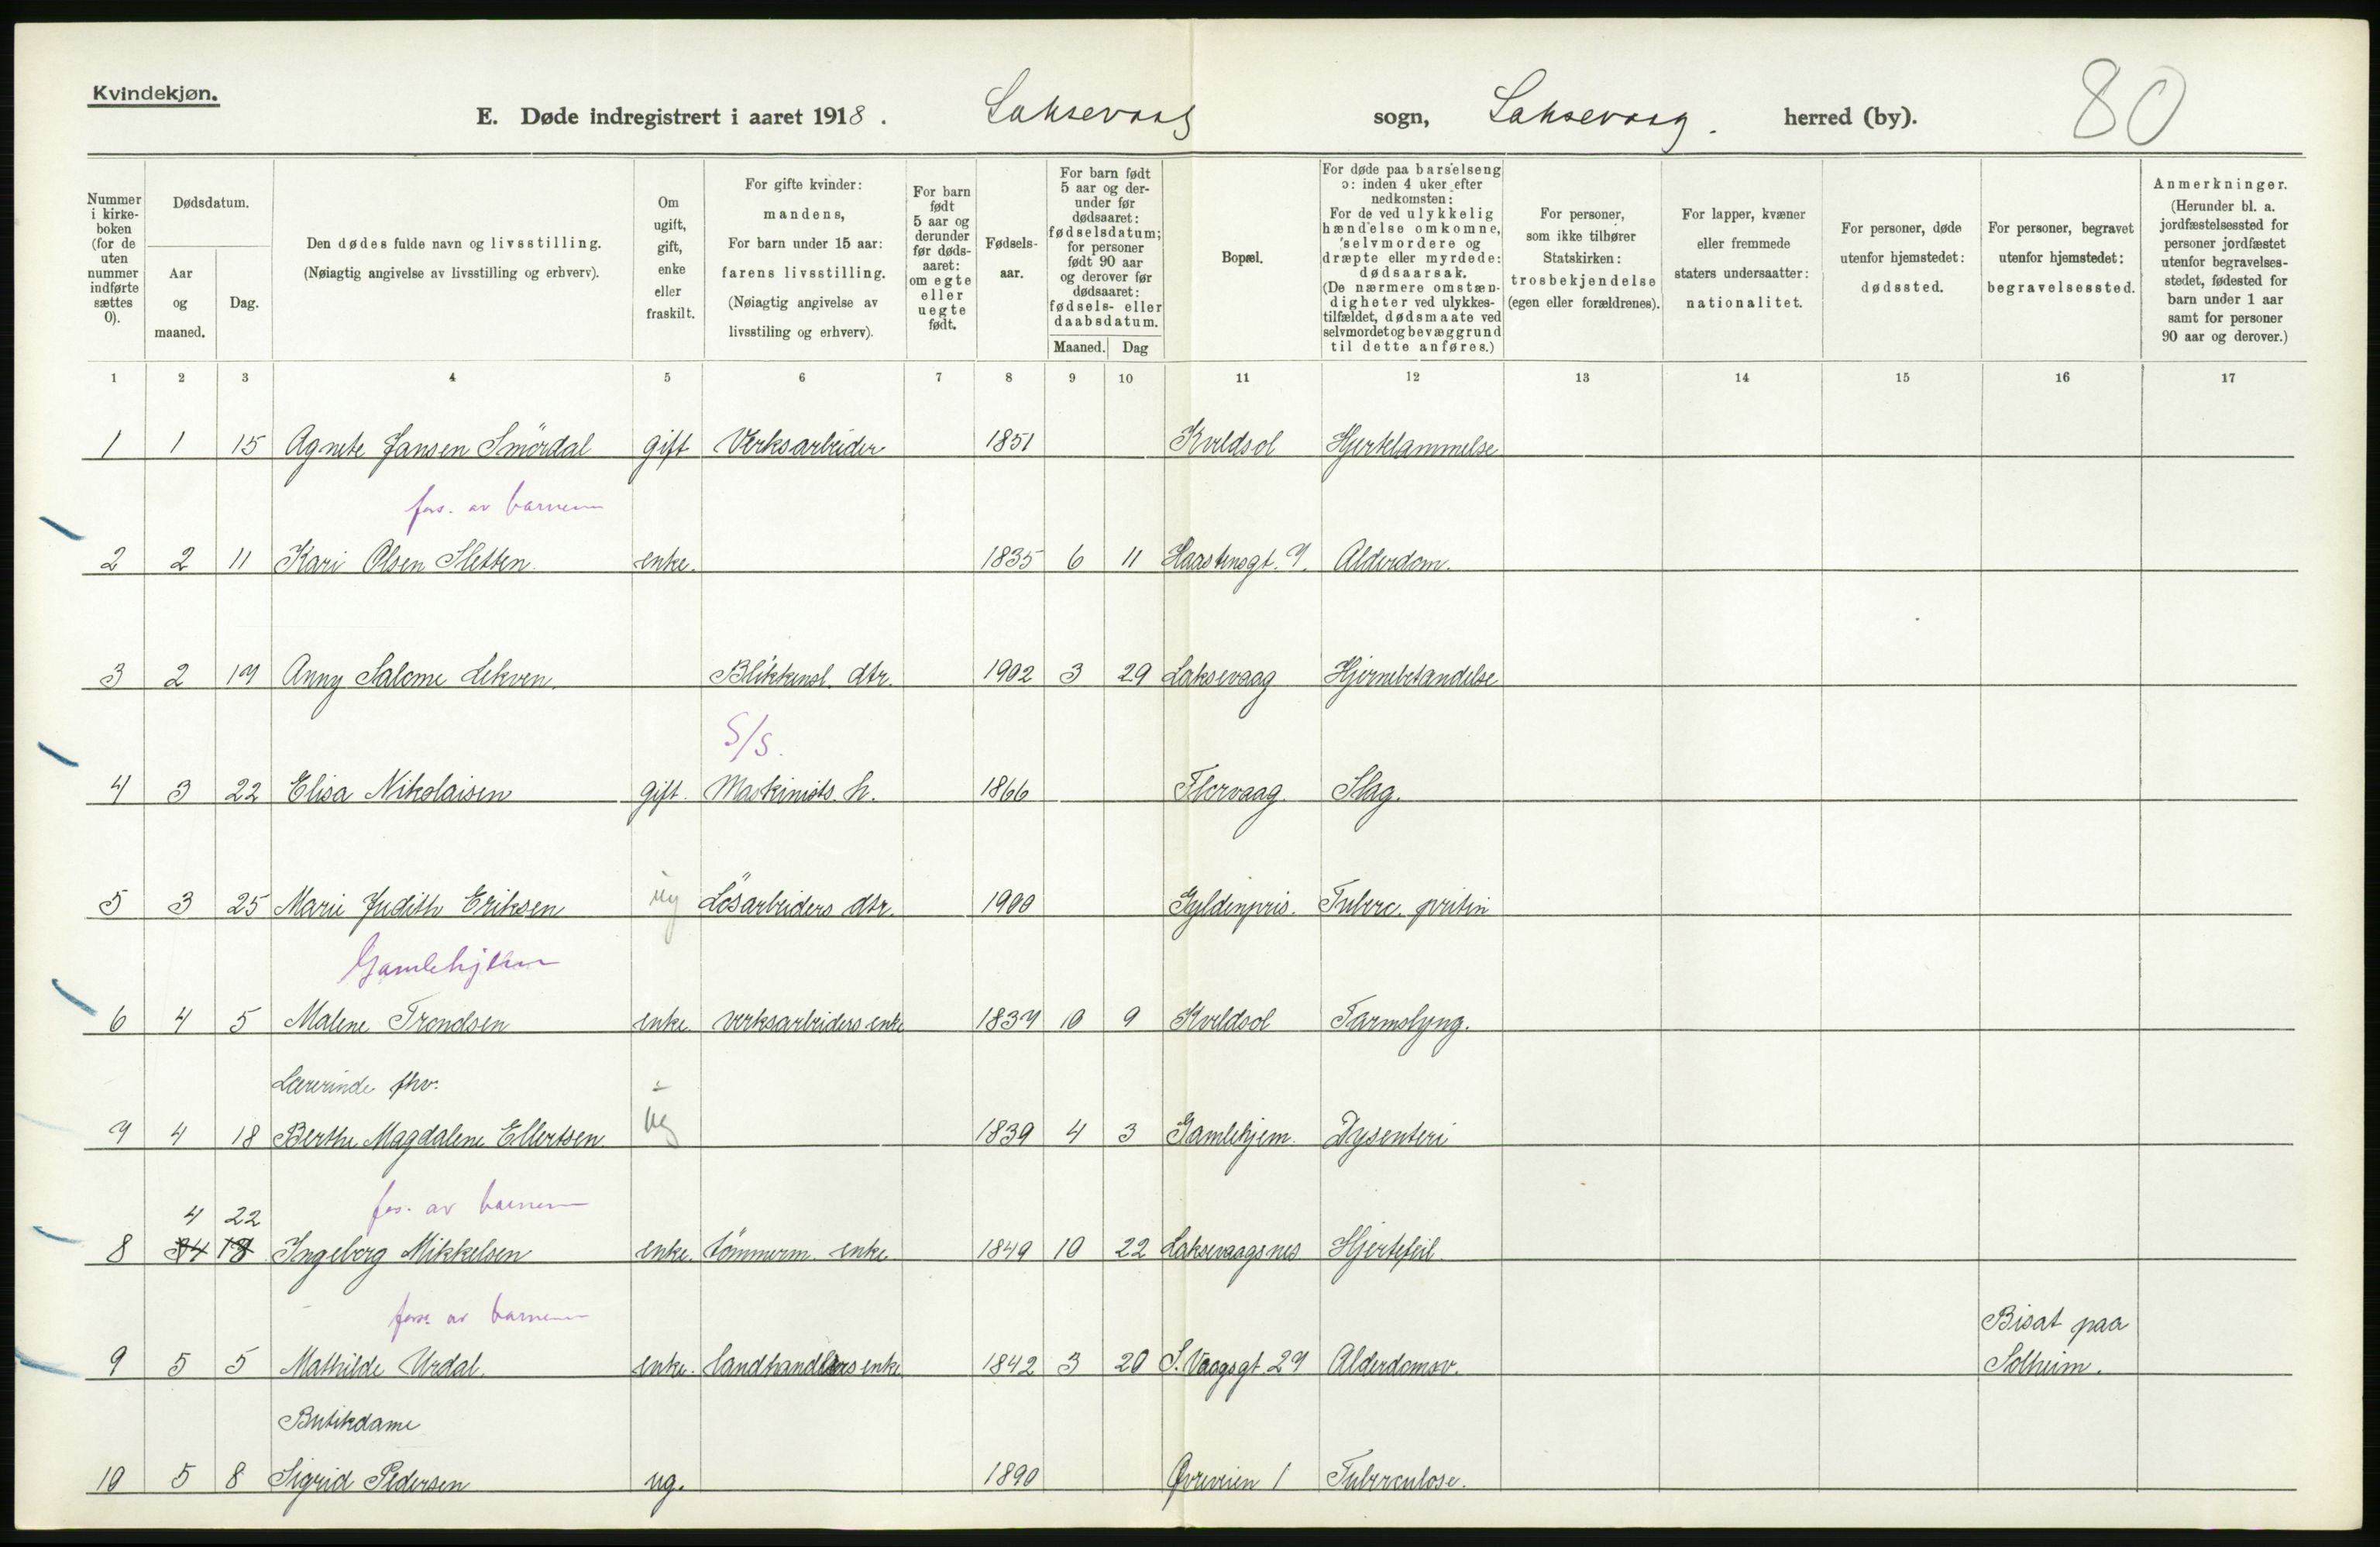 Kvindekjøn.
E. Døde indregistrert i aaret 1918. Laksevaag sogn, Laksevaag. herred (by). 80
Nummer i kirke-boken (for de uten nummer indførte sættes 0).
Dødsdatum.
Aar og maaned.
Dag.
Den dødes fulde navn og livsstilling.
(Nøiagtig angivelse av livsstilling og erhverv).
Om ugift, gift, enke eller fraskilt.
For gifte kvinder: mandens,
For barn under 15 aar: farens livsstilling.
(Nøiagtig angivelse av livsstiling og erhverv).
For barn født 5 aar og derunder før døds-aaret: om egte eller uegte født.
Fødsels-aar.
For barn født 5 aar og der-under før dødsaaret: fødselsdatum; for personer født 90 aar og derover før dødsaaret: fødsels- eller daabsdatum.
Maaned. Dag
Bopæl.
For døde paa barselseng ɔ: inden 4 uker efter nedkomsten:
For de ved ulykkelig hændelse omkomne, selvmordere og dræpte eller myrdede: dødsaarsak.
(De nærmere omstæn-digheter ved ulykkes-tilfældet, dødsmaate ved selvmordet og bevæggrund til dette anføres.)
For personer, som ikke tilhører Statskirken: trosbekjendelse (egen eller forældrenes).
For lapper, kvæner eller fremmede staters undersaatter: nationalitet.
For personer, døde utenfor hjemstedet: dødssted.
For personer, begravet utenfor hjemstedet: begravelsessted.
Anmerkninger.
(Herunder bl. a. jordfæstelsessted for personer jordfæstet utenfor begravelses-stedet, fødested for barn under 1 aar samt for personer 90 aar og derover.)
1 2 3 4 5 6 7 8 9 10 11 12 13 14 15 16 17
1 1 15 Agnete Jansen Smördal gift Verksarbeider 1851 Kveldsol Hjerteslammelse
fors. av barnene
2 2 11 Kari Olsen Sletten. enke. 1835 6 11 Haastensgt. 7. Alderdom.
3 2 17 Anny Salome Lekven. Blikkensl. dtr. 1902 3 29 Laksevaag Hjernebetændelse
S/S.
4 3 22 Elisa Nikolaisen gift. Maskinists. h. 1866 Florvaag. Slag.
5 3 25 Marie Judith Eriksen ug Lösarbeiders dtr. 1900 Gyldenpris. Tuberc. peritin
Gamlehjem
6 4 5 Malene Trondsen enke. verksarbeiders enke 1837 10 9 Kveldsol Tarmslyng.
Lærerinde fhv. -
7 4 18 Berthe Magdalene Ellertsen ug 1839 4 3 Gamlehjem. Dysenteri
4 22 fors. av barnene
8 Ingeborg Mikkelsen enke. tömmerm. enke 1849 10 22 Laksevaagsnes Hjertefeil.
fors. av barnene Bisat paa
9 5 5 Mathilde Urdal. enke. landhandlers enke 1842 3 20 S. Vaagsgt. 27 Alderdomsv. Solheim.
Butikdame
10 5 8 Sigrid Pedersen ug. 1890 Øvreveien 1 Tuberculose.